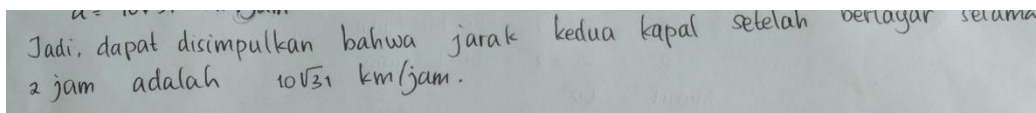 Jadi, dapat disimpulkan bahwa jarak kedua kapal setelah berlayar selama
2 jam adalah 10√31 km/jam.